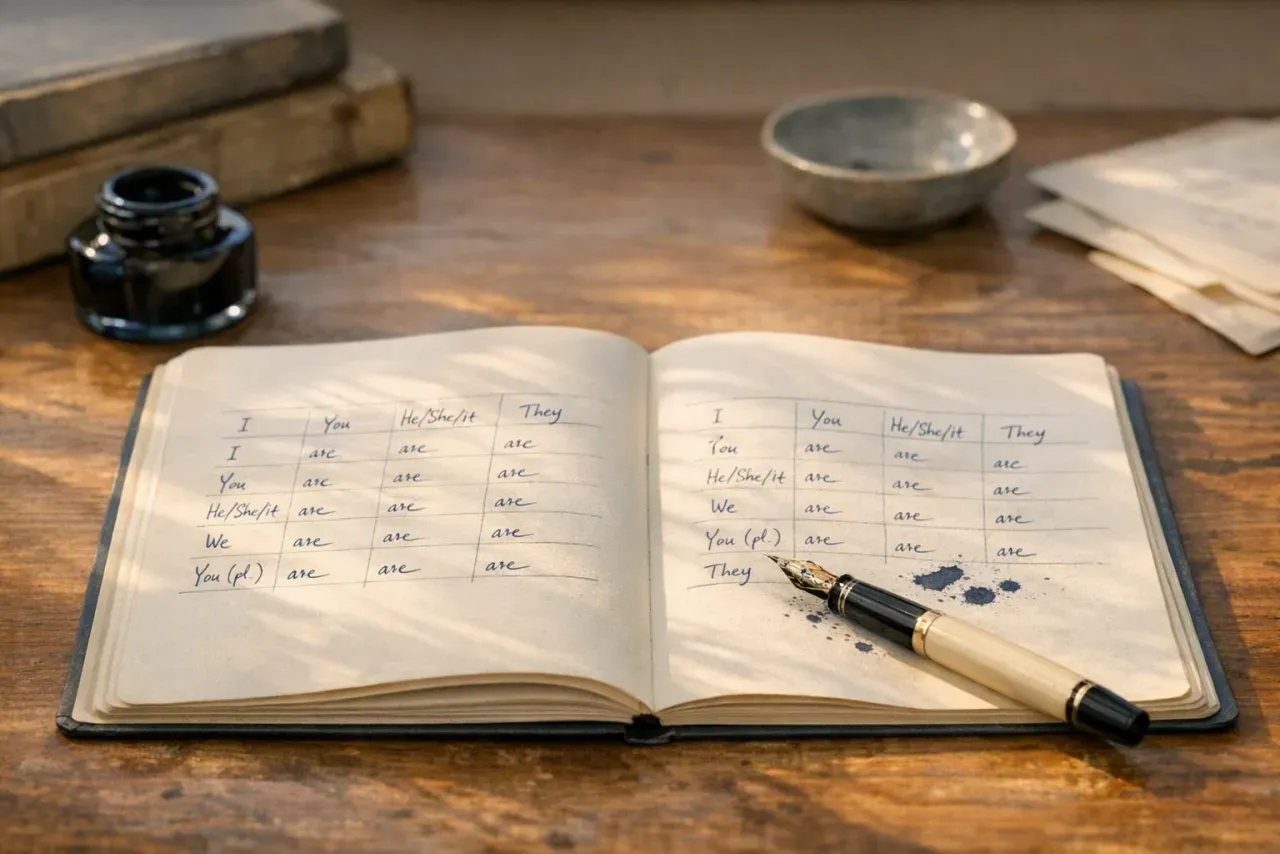 I You He/She/it They
I are are are
You are are are
He/She/it are are are
We are are are
You (pl.) are are are
I You He/She/it They
You are are are
He/She/it are are are
We are are are
You (pl.) are are are
They